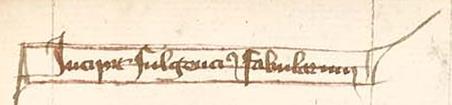 Incipit fulgenciꝰ fabularum